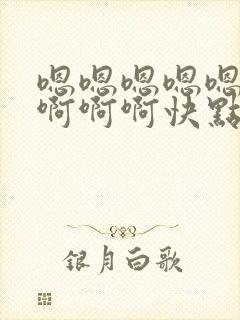 嗯嗯嗯嗯嗯
啊啊啊快點
银月白歌